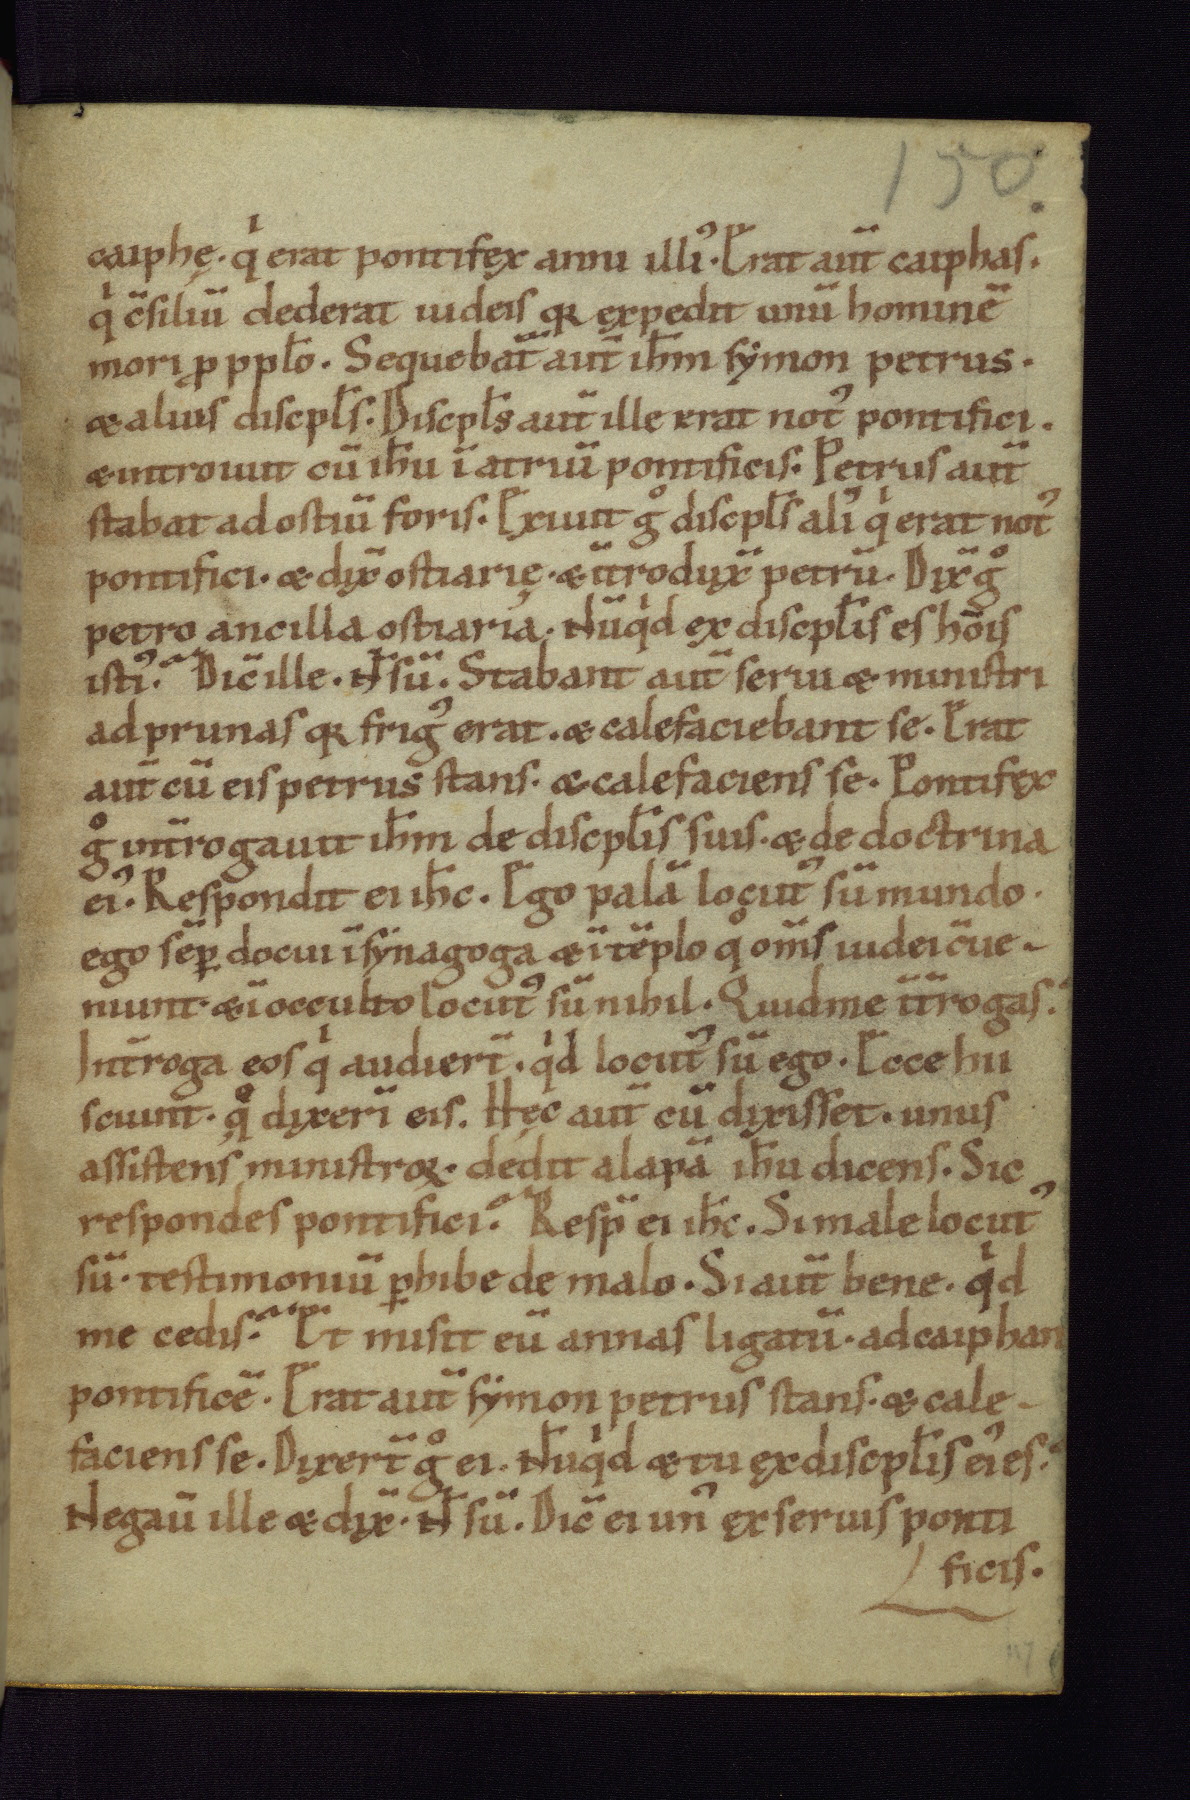 150.
caiphę. q̍ erat pontifex anni illi᾽. Erat aut̄ caiphas.
q̍ c̄siliū dederat iudeis qꝛ expedit unū hominē
mori ꝓ ppl̄o. Sequebat̄ aut̄ ih̄m sẏmon petrus.
& alius discpl̄s. Discpl̄s aut̄ ille erat not᾽ pontifici.
& introiuit cū ih̄u ī atriū pontificis. Petrus aut̄
stabat ad ostiū foris. Exiuit gͦ discpl̄s ali᾽ q̍ erat not᾽
pontifici. & dix̄ ostiarię. & ītrodux̄ petrū. Dix̄ gͦ
petro ancilla ostiaria. Nūq̍d ex discpl̄is es hōis
isti᾽? Dic̄ ille. N̄ sū. Stabant aut̄ serui & ministri
ad prunas qꝛ frig᾽ erat. & calefaciebant se. Erat
aut̄ cū eis petrus stans. & calefaciens se. Pontifex
gͦ int̄rogauit ih̄m de discpl̄is suis. & de doctrina
ei᾽. Respondit ei ih̄c. Ego palā locut᾽ sū mundo.
ego sēꝑ docui ī sẏnagoga & ī tēplo qͦ om̄s iudei c̄ue-
niunt. & ī occulto locut᾽ sū nihil. Quid me īt̄rogas?
Int̄roga eos q̍ audiert̄. q̍d locut᾽ sū ego. Ecce hii
sciunt. qͦ dixerī eis. Hęc aut̄ cū dixisset. unus
assistens ministroꝝ. dedit alapā ih̄u dicens. Sic
respondes pontifici? Resp̄ ei ih̄c. Si male locut᾽
sū. testimoniū ꝑhibe de malo. Si aut̄ bene. q̍d
me cedis? Et misit eū annas ligatū. ad caiphan
pontificē. Erat aut̄ sẏmon petrus stans. & cale-
faciens se. Dixert̄ gͦ ei. Nūq̍d & tu ex discpl̄is ei᾽ es?
Negaū ille & dix̄. N̄ sū. Dic̄ ei un᾽ ex seruis ponti
ficis.